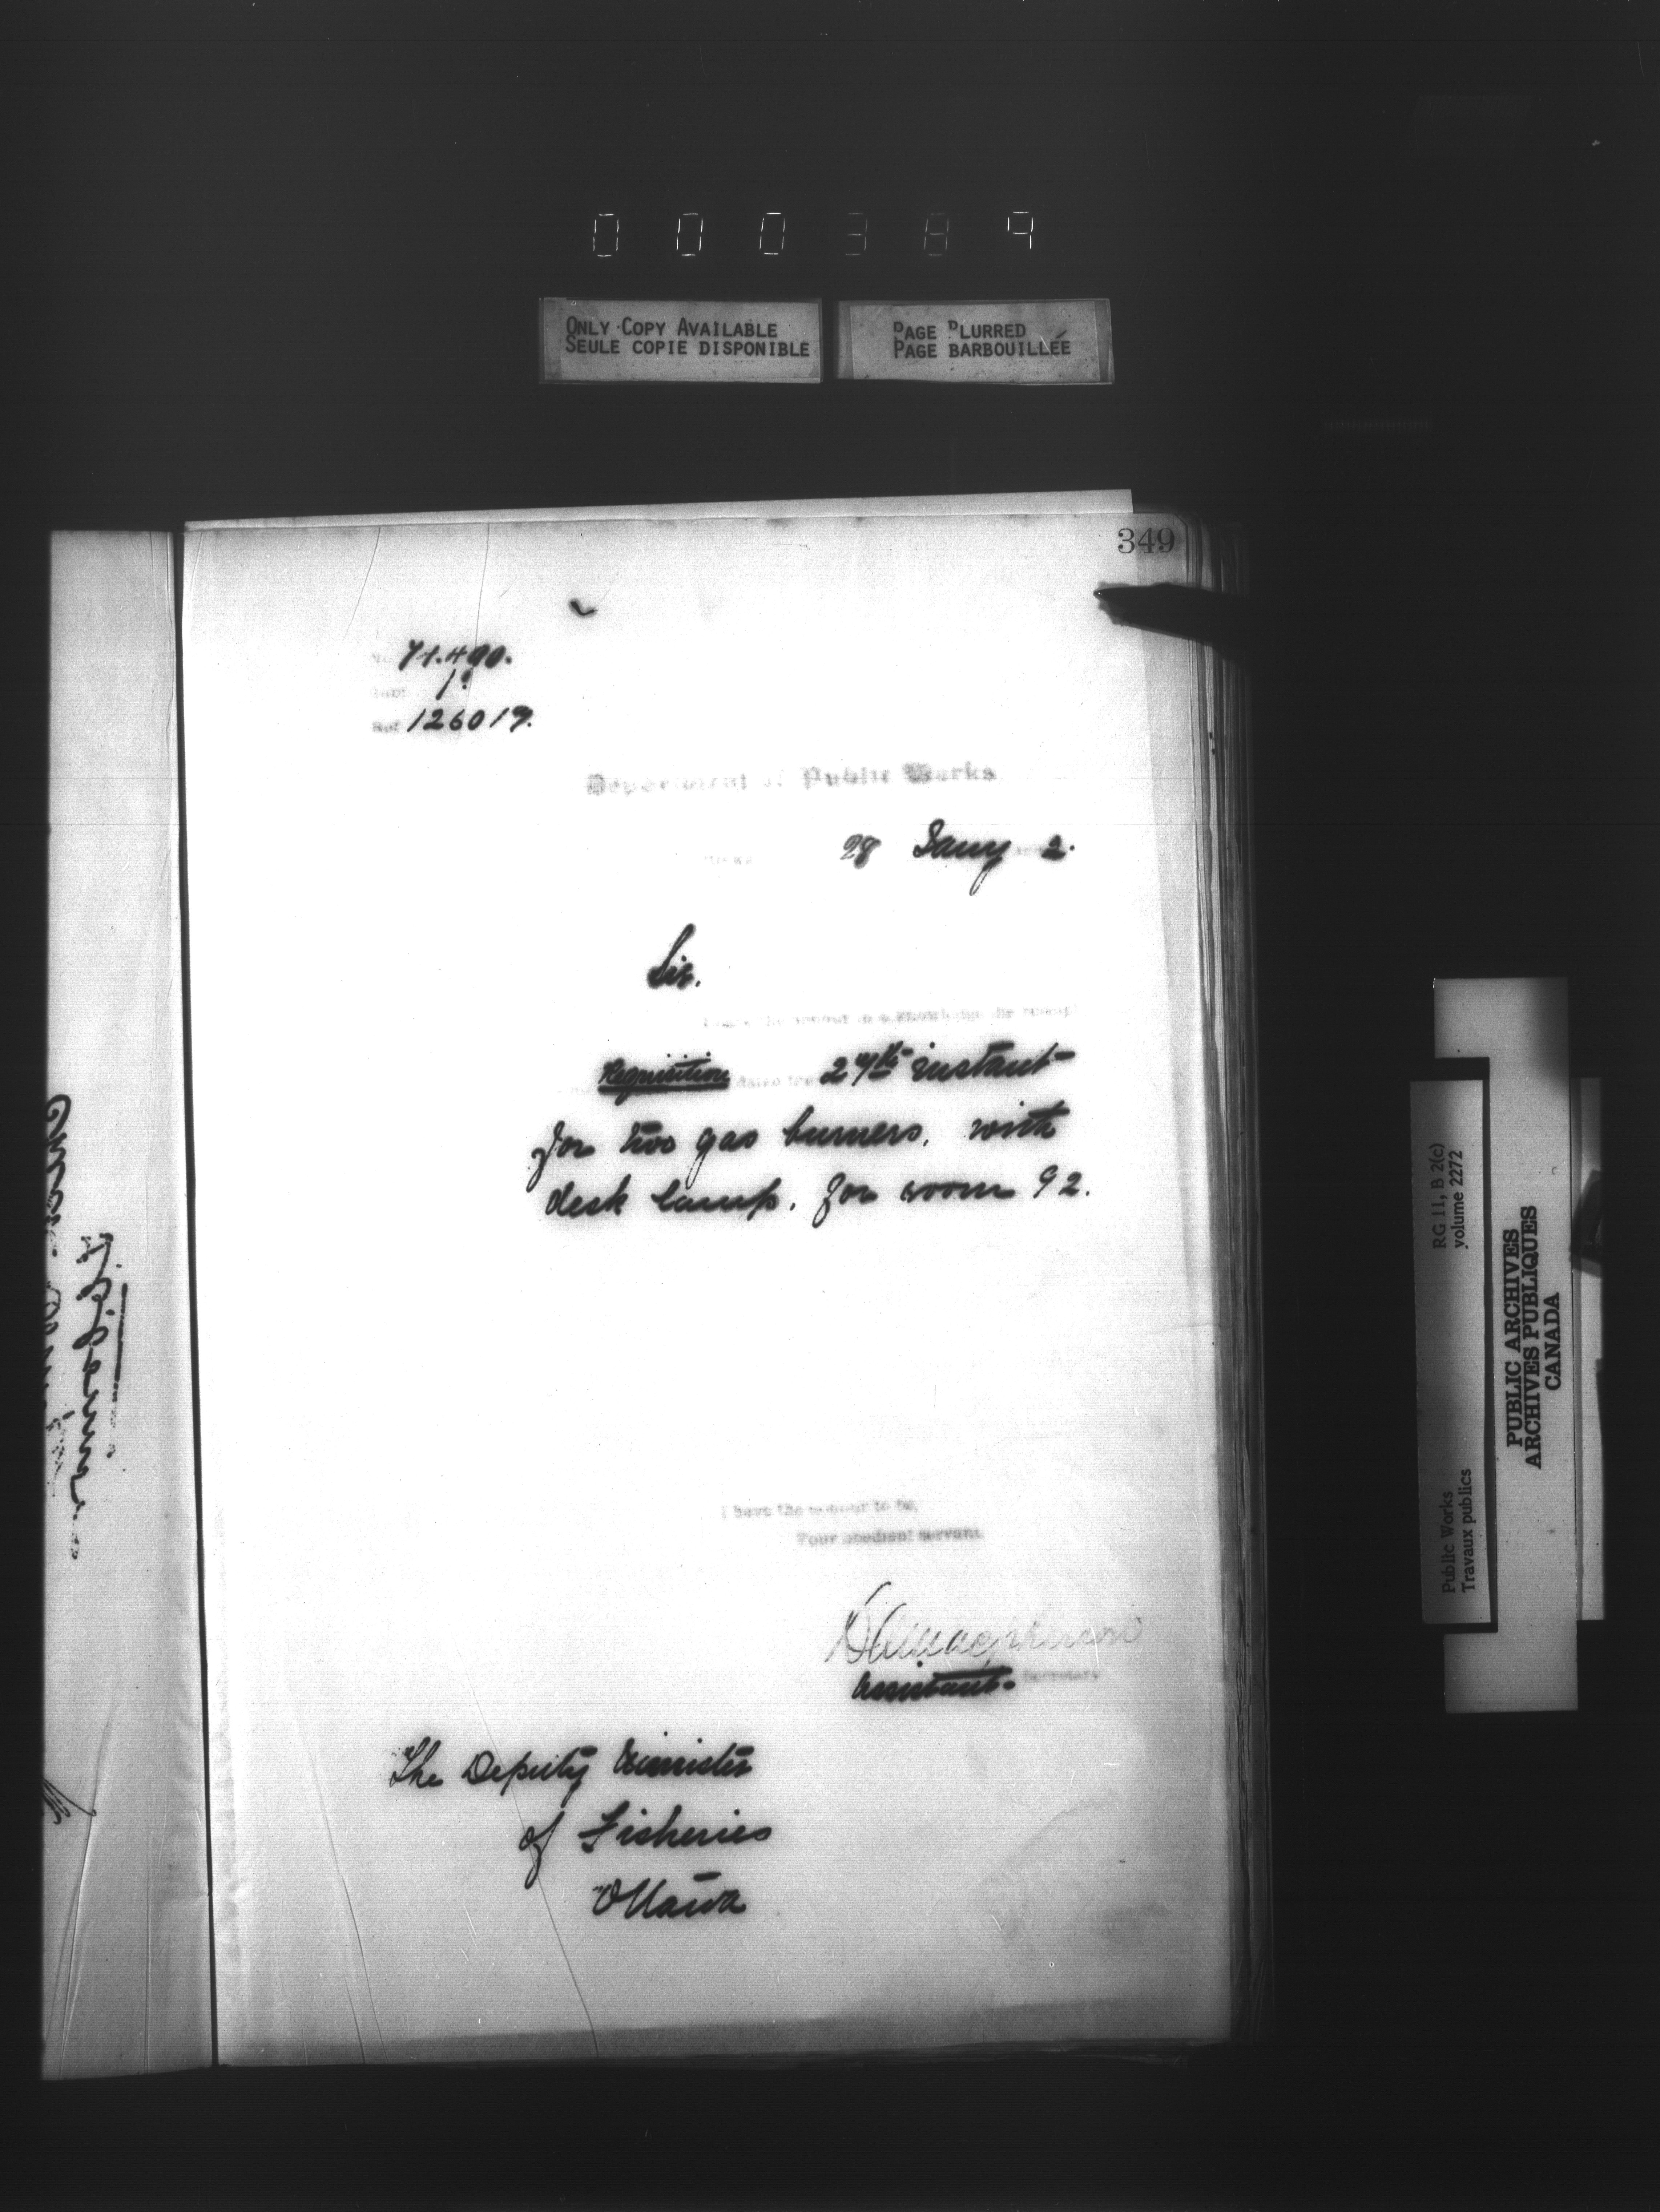 0 0 0 3 8 9
ONLY COPY AVAILABLE
SEULE COPIE DISPONIBLE
PAGE BLURRED
PAGE BARBOUILLÉE
349
No 71.490.
Sub: 1.
Ref 126019.
Department of Public Works
28 Jany 2.
Sir.
I have the honour to acknowledge the receipt
Requisition dated the 27th instant
for two gas burners, with
desk lamp, for room 92.
I have the honour to be,
Your obedient servant
Assistant. Secretary
The Deputy Minister
of Fisheries
Ottawa
Public Works
Travaux publics
RG 11, B 2(c)
volume 2272
PUBLIC ARCHIVES
ARCHIVES PUBLIQUES
CANADA